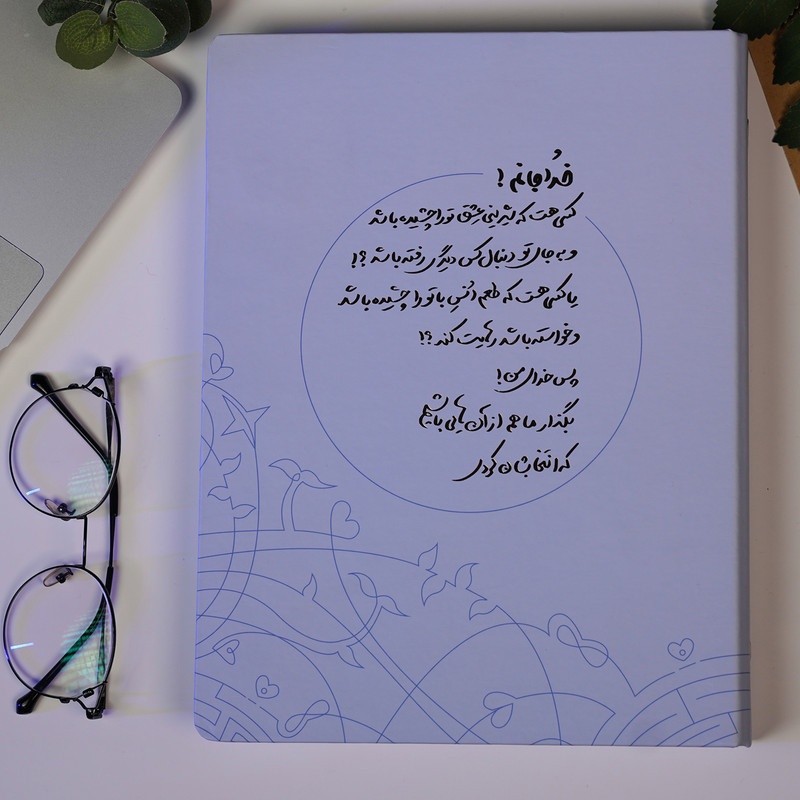 خُداجانم !
کسی هست که شیرینی عشق تو را چشیده باشد
و به جای تو دنبال کس دیگری رفته باشد ؟!
یا کسی هست که طعم اُنسِ با تو را چشیده باشد
و خواسته باشد رهایت کند ؟!
پس خدای من !
بگذار ما هم از آن هایی باشیم
که انتخابشان کردی